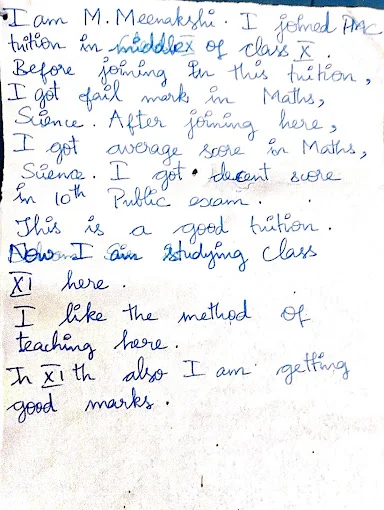 I am M. Meenakshi. I joined PMC
tuition in middle of class X.
Before joining in this tuition,
I got fail mark in Maths,
Science. After joining here,
I got average score in Maths,
Science. I got decent score
in 10th Public exam.
This is a good tuition.
Now I am studying class
XI here.
I like the method of
teaching here.
In XI th also I am getting
good marks.